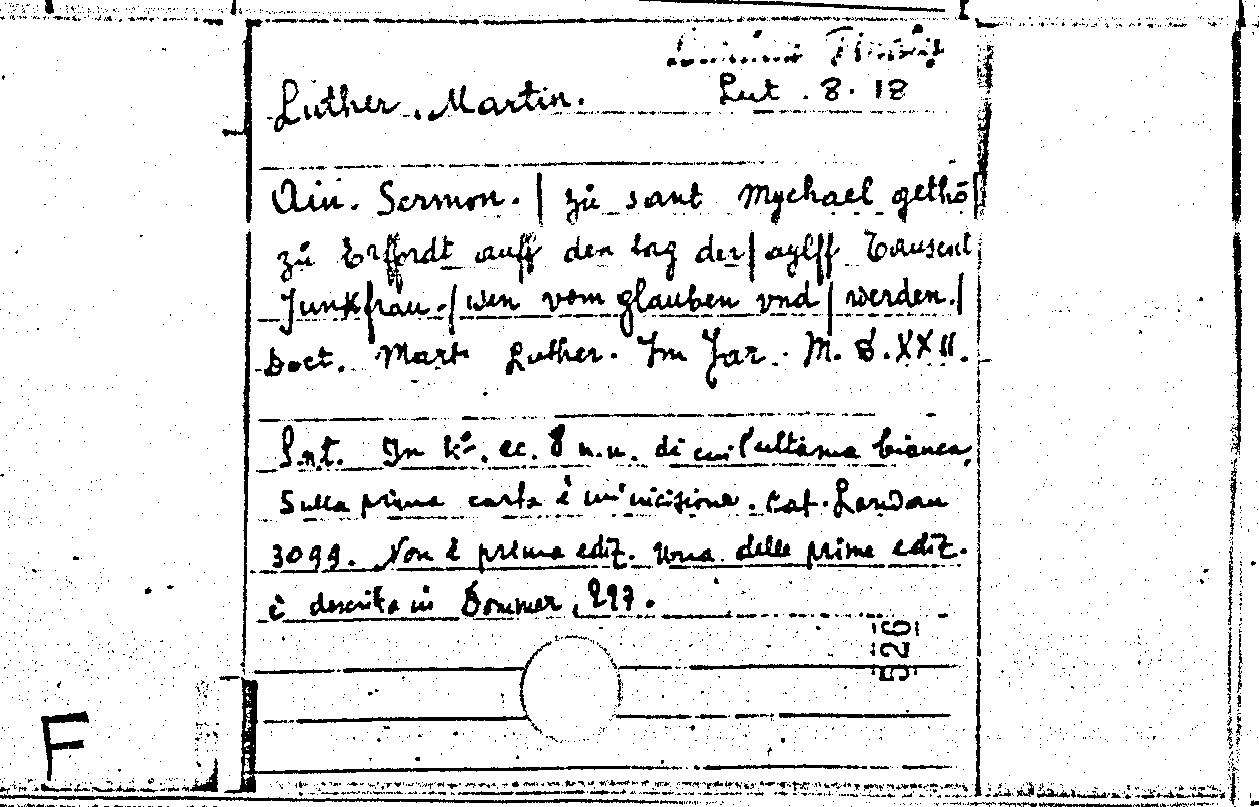 Lut. 8. 18
Luther, Martin.
Ain. Sermon. | zů sant Mychael gethō |
zů Erffordt auff den tag der | aylff Tausent
Junkfrau. | wen vom glauben vnd | werden. |
Doct. Mart. Luther. Im Jar. M. D. XXII.
S.n.t. In 4º. cc. 8 n.n. di cui l'ultima bianca.
Sulla prima carta è un'incisione. Cat. Landau
3099. Non è prima ediz. Una delle prime ediz.
è descritta in Dommer, 297.
526
F